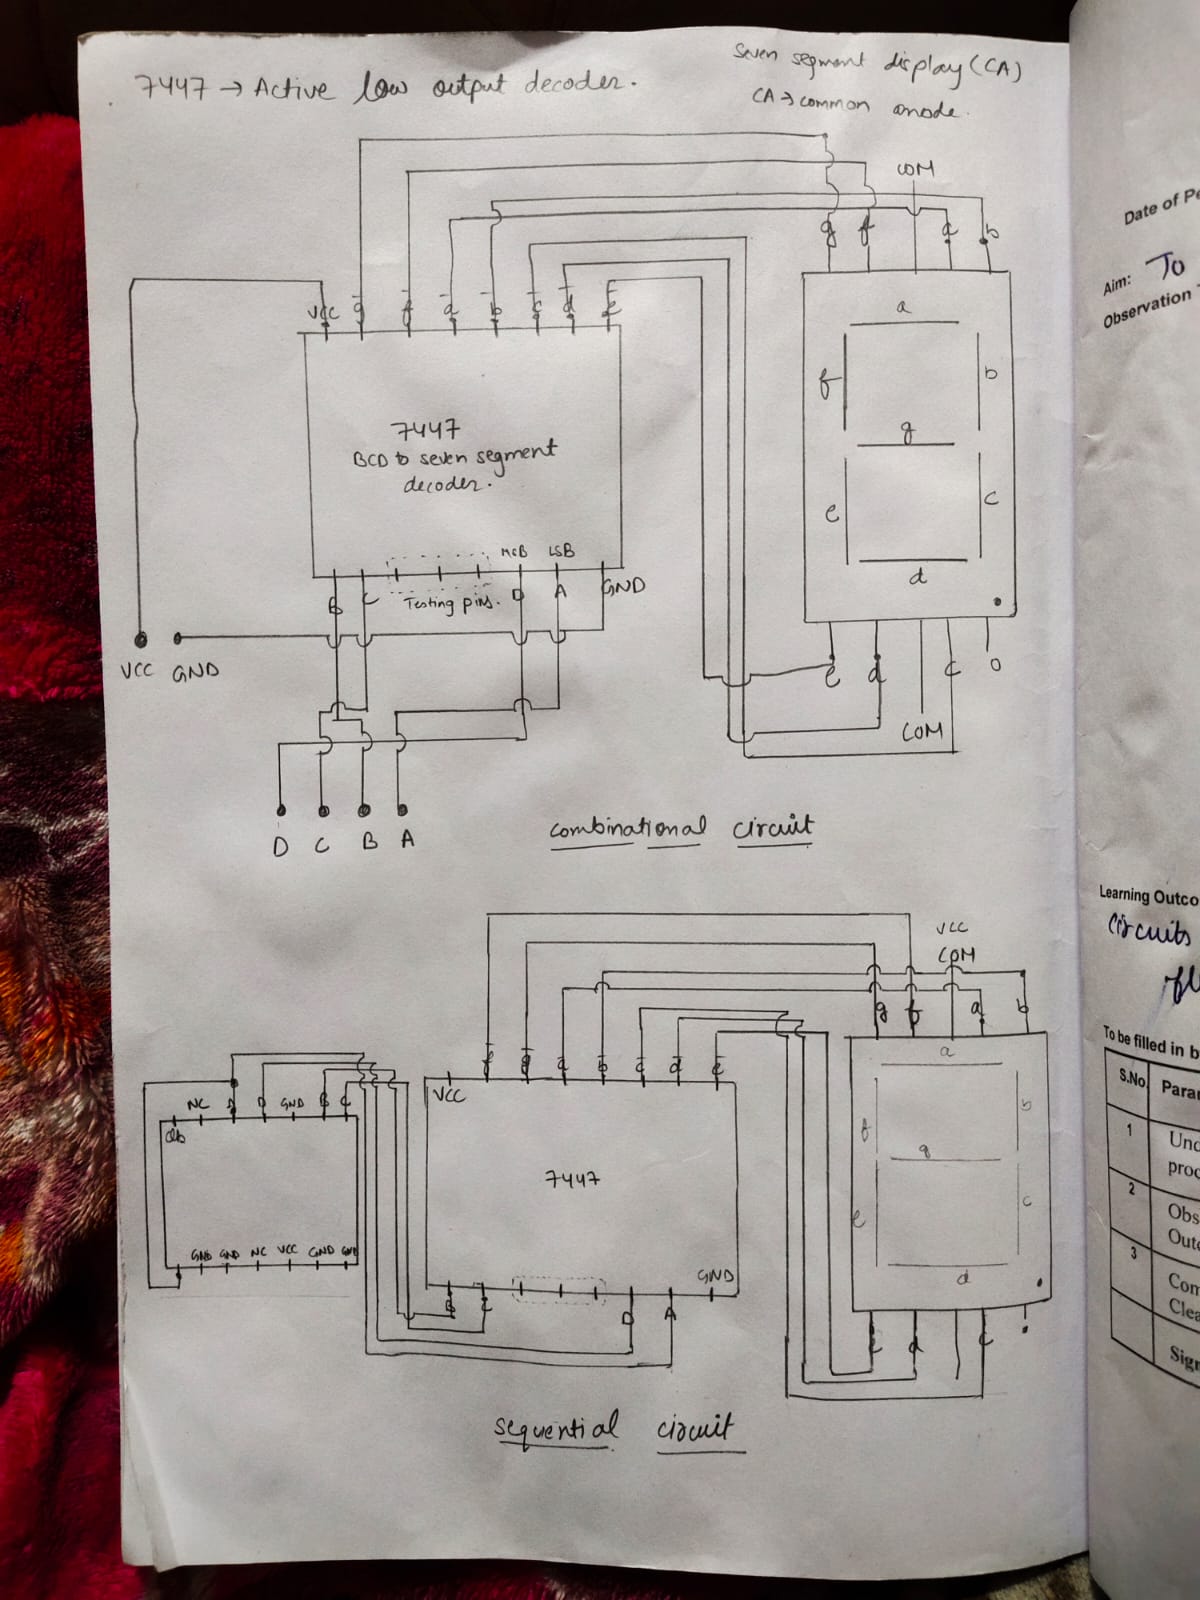 7447 → Active low output decoder.
Seven segment display (CA)
CA → common anode.
COM
g f a b
VCC g f a b c d e
a
f b
g
e c
d
7447
BCD to seven segment
decoder.
MCB LSB
B C Testing pins. D A GND
VCC GND
e d c
COM
D C B A
combinational circuit
VCC
COM
g f a b
f g a b c d e
VCC
NC A D GND B C
a
f b
g
e c
d
7447
GND GND NC VCC GND GND
GND
B C D A
e d c
sequential circuit
Date of Pe
Aim: To
Observation
Learning Outco
circuits
To be filled in b
S.No. Para
1 Und
proc
2 Obs
Outc
3 Com
Clea
Sign